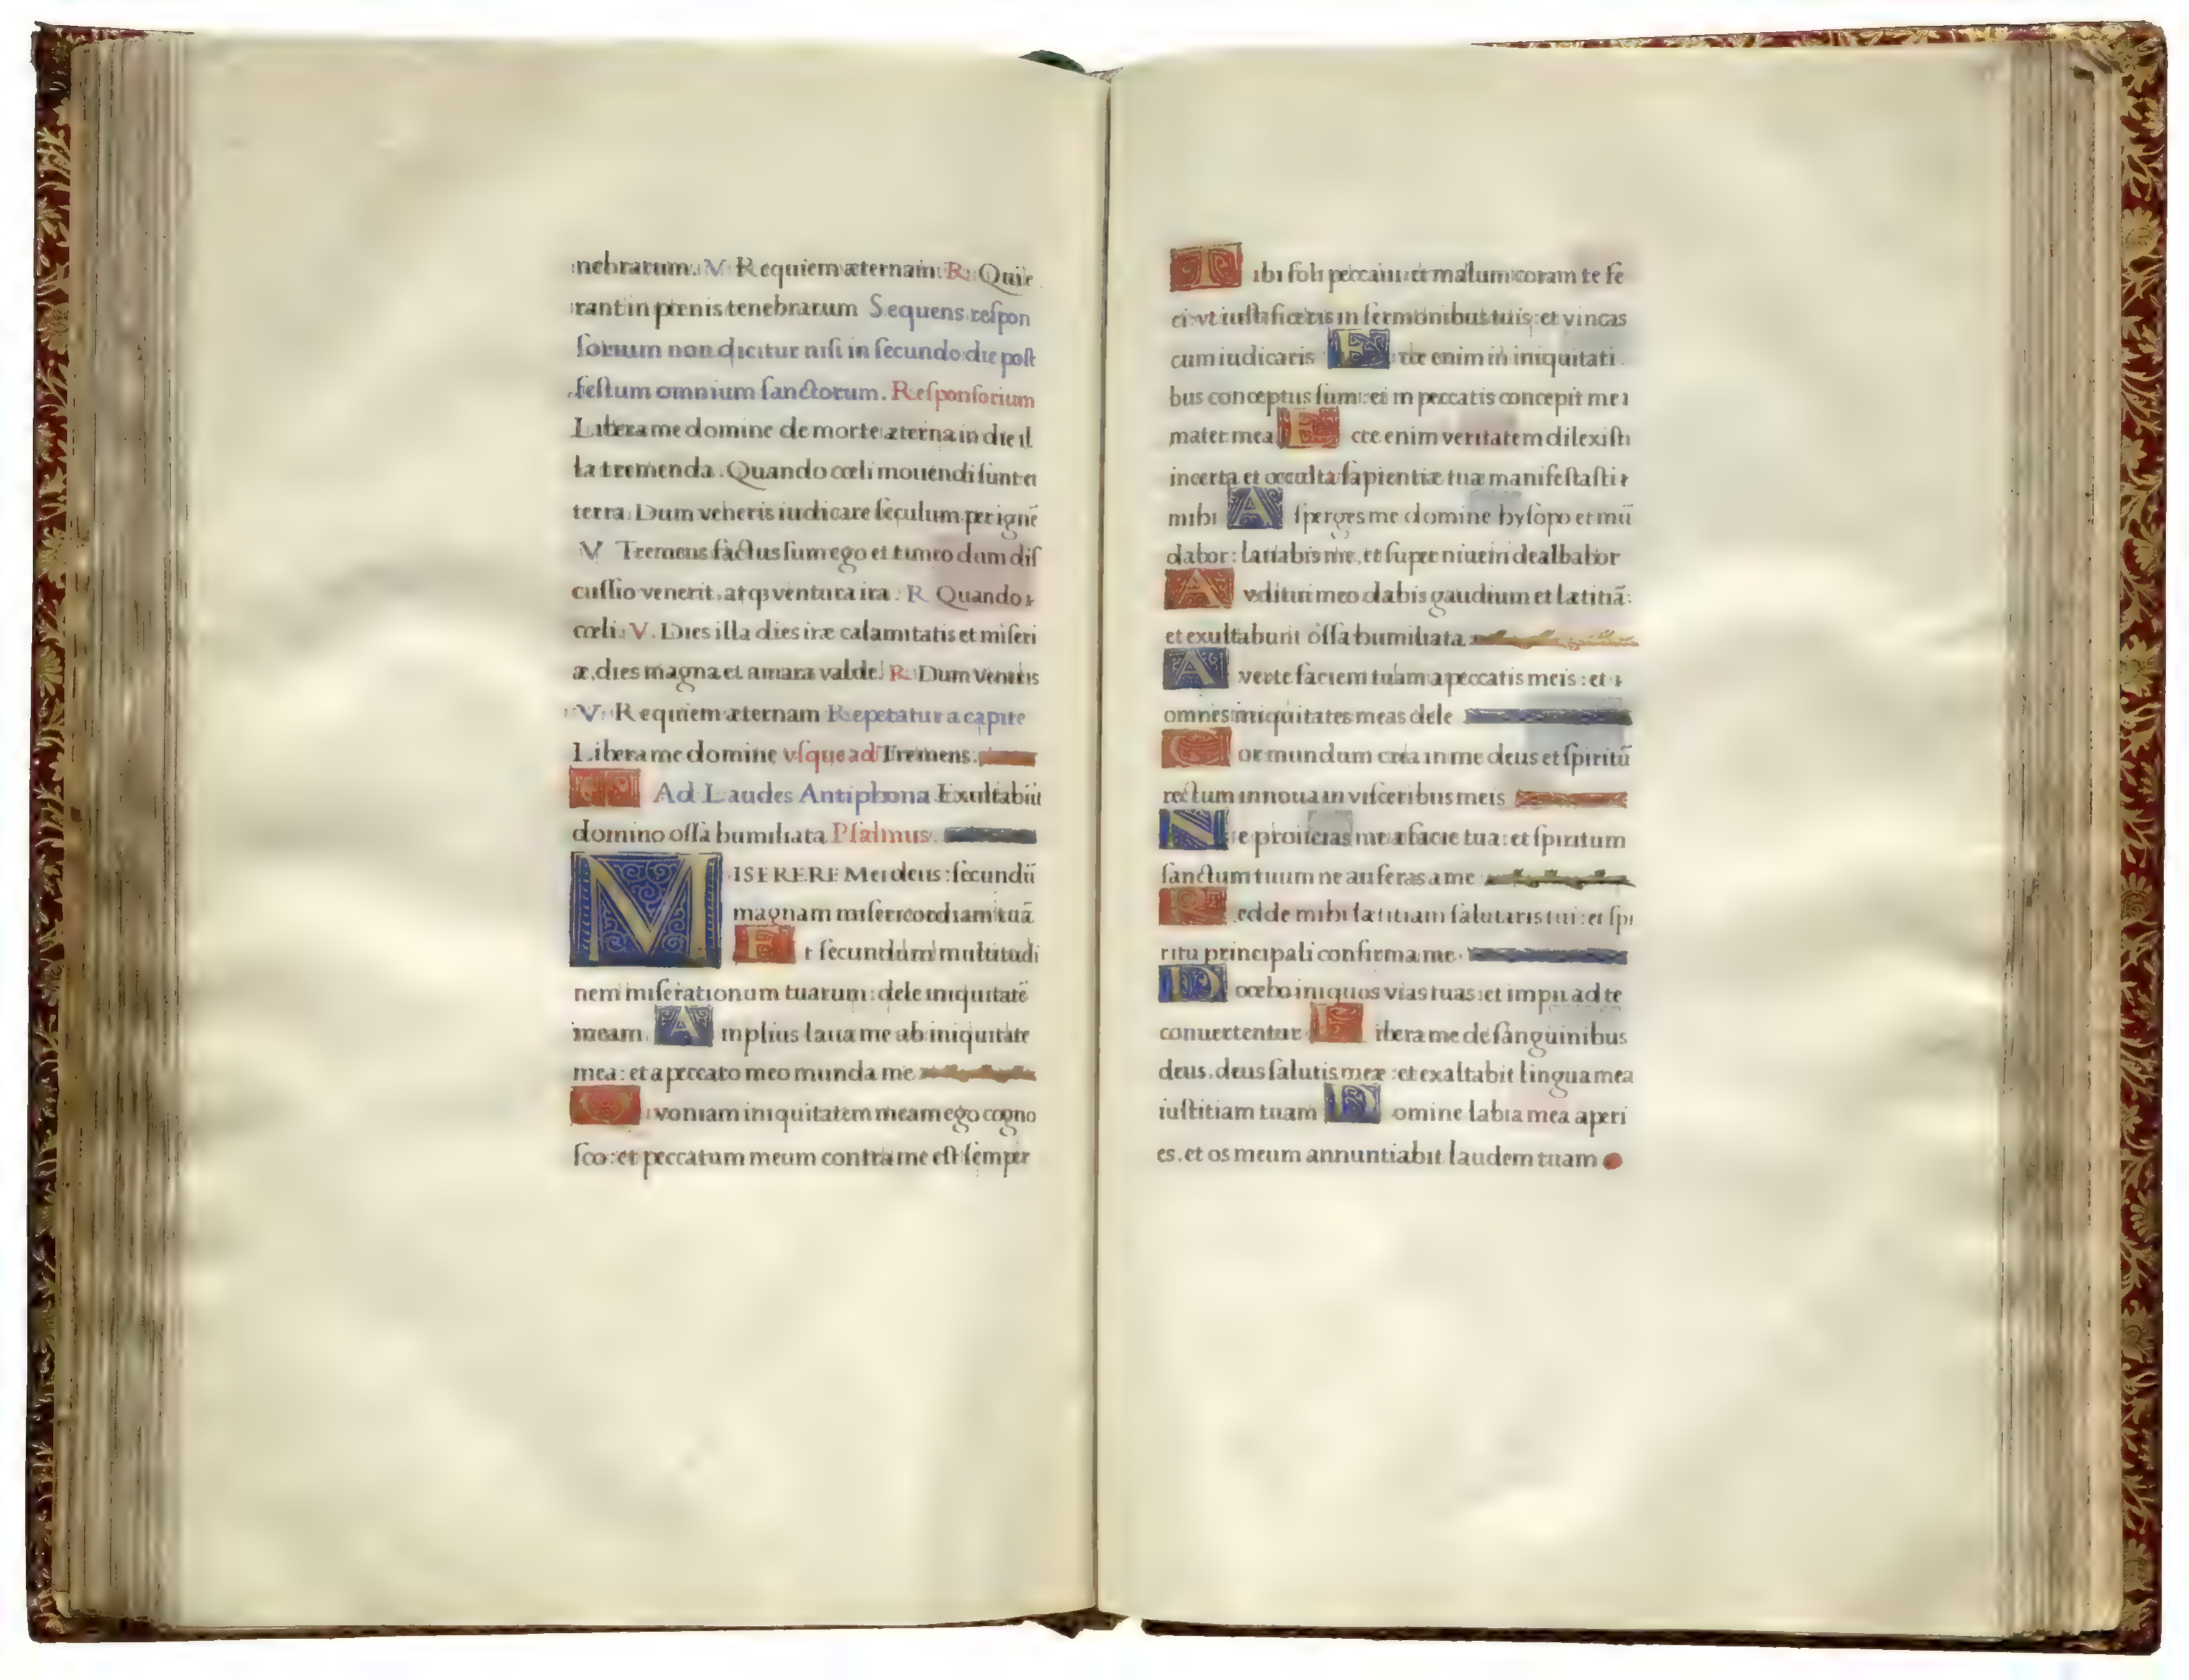 nebrarum. V. Requiem æternam. R. Quie
rant in pœnis tenebrarum Sequens reſpon
ſorium non dicitur niſi in ſecundo die poſt
feſtum omnium ſanctorum. Reſponſorium
Libera me domine de morte æterna in die il
la tremenda. Quando cœli mouendi ſunt et
terra. Dum veneris iudicare ſeculum per ignē
V Tremens factus ſum ego et timeo dum diſ
cuſſio venerit. atqꝫ ventura ira. R Quando
cœli. V. Dies illa dies iræ calamitatis et miſeri
æ, dies magna et amara valde. R. Dum Veneris
V. Requiem æternam Repetatur a capite
Libera me domine vſque ad Tremens.
Ad Laudes Antiphona Exultabūt
domino oſſa humiliata Pſalmus.
MISERERE Mei deus: ſecundū
magnam miſericordiam tuā
Et ſecundum multitudi
nem miſerationum tuarum: dele iniquitatē
meam. Amplius laua me ab iniquitate
mea: et a peccato meo munda me
Quoniam iniquitatem meam ego cogno
ſco: et peccatum meum contra me eſt ſemper
Tibi ſoli peccaui: et malum coram te fe
ci: vt iuſtificeris in ſermonibus tuis: et vincas
cum iudicaris Ecce enim in iniquitati
bus conceptus ſum: et in peccatis concepit me
mater mea Ecce enim veritatem dilexiſti
incerta et occulta ſapientiæ tuæ manifeſtaſti
mihi Aſperges me domine hyſopo et mū
dabor: lauabis me, et ſuper niuem dealbabor
Auditui meo dabis gaudium et lætitiā:
et exultabunt oſſa humiliata
Auerte faciem tuam a peccatis meis: et
omnes iniquitates meas dele
Cor mundum crea in me deus et ſpiritū
rectum innoua in viſceribus meis
Ne proiicias me a facie tua: et ſpiritum
ſanctum tuum ne auferas a me
Redde mihi lætitiam ſalutaris tui: et ſpi
ritu principali confirma me.
Docebo iniquos vias tuas: et impii ad te
conuertentur Libera me de ſanguinibus
deus, deus ſalutis meæ: et exaltabit lingua mea
iuſtitiam tuam Domine labia mea aperi
es, et os meum annuntiabit laudem tuam